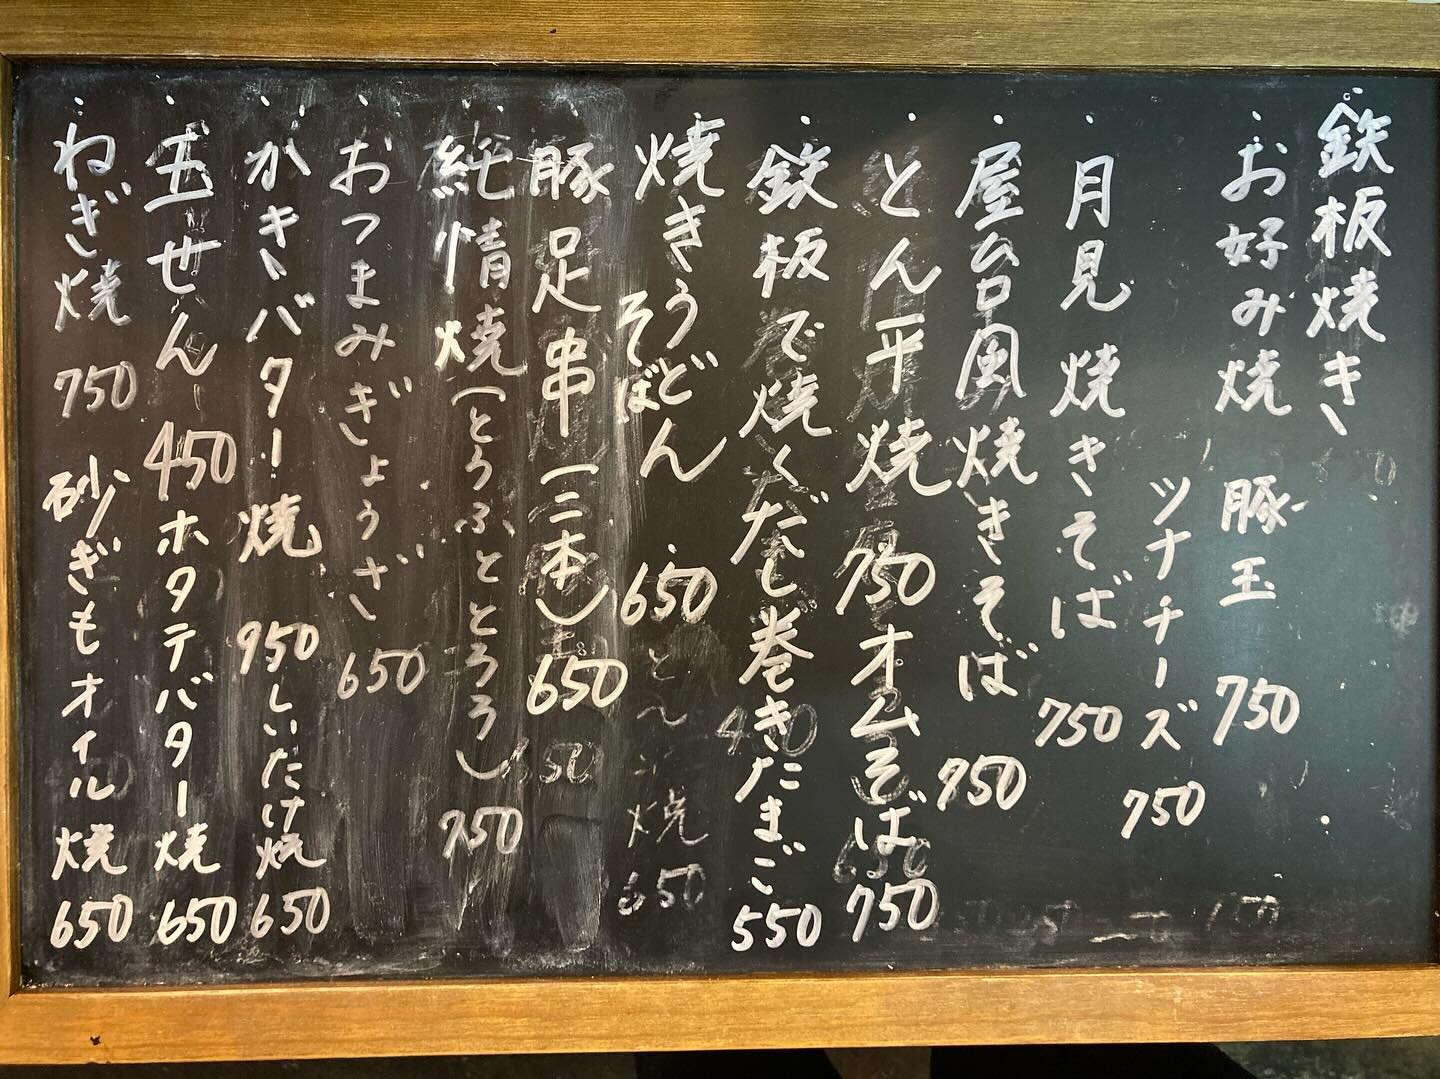 鉄板焼き
お好み焼 豚玉 750
ツナチーズ 750
月見焼きそば 750
屋台風焼きそば 750
とん平焼 750 オムそば 750
鉄板で焼くだし巻きたまご 550
焼きうどん
そば 650
豚足串(二本) 650
純情焼(とうふととろろ) 750
おつまみぎょうざ 650
かきバター焼 950 しいたけ焼 650
玉せん 450 ホタテバター焼 650
ねぎ焼 750 砂ぎもオイル焼 650